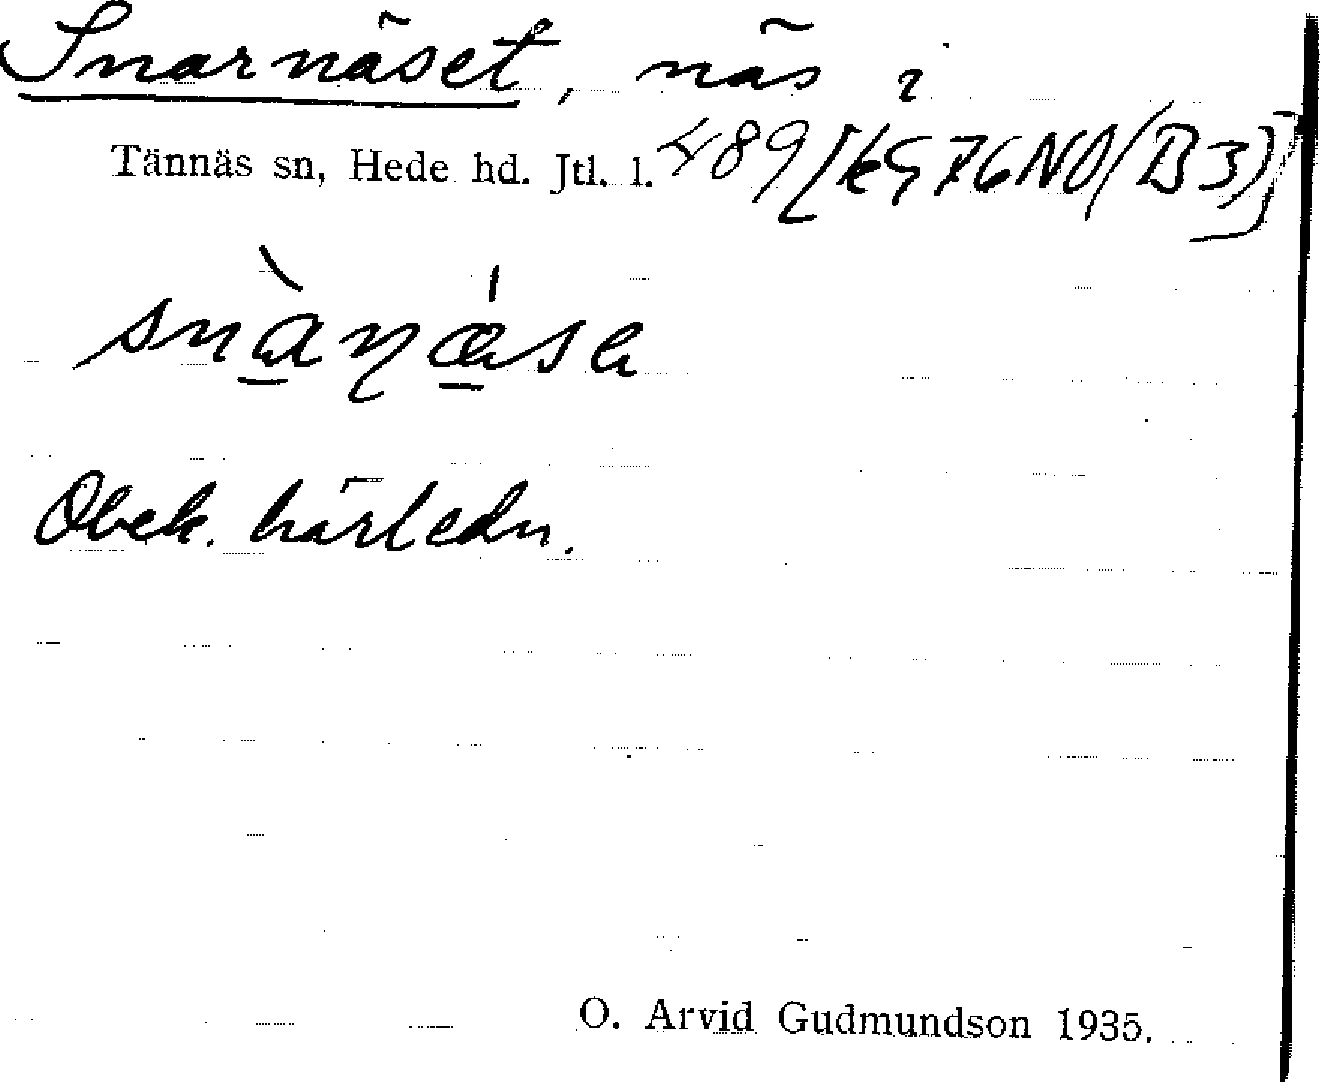 Snarnäset, näs i
Tännäs sn, Hede hd. Jtl. l. 489 [kg 76 NO (B3)]
snàn̨ǽsa
Obek. härledn.
O. Arvid Gudmundson 1935.